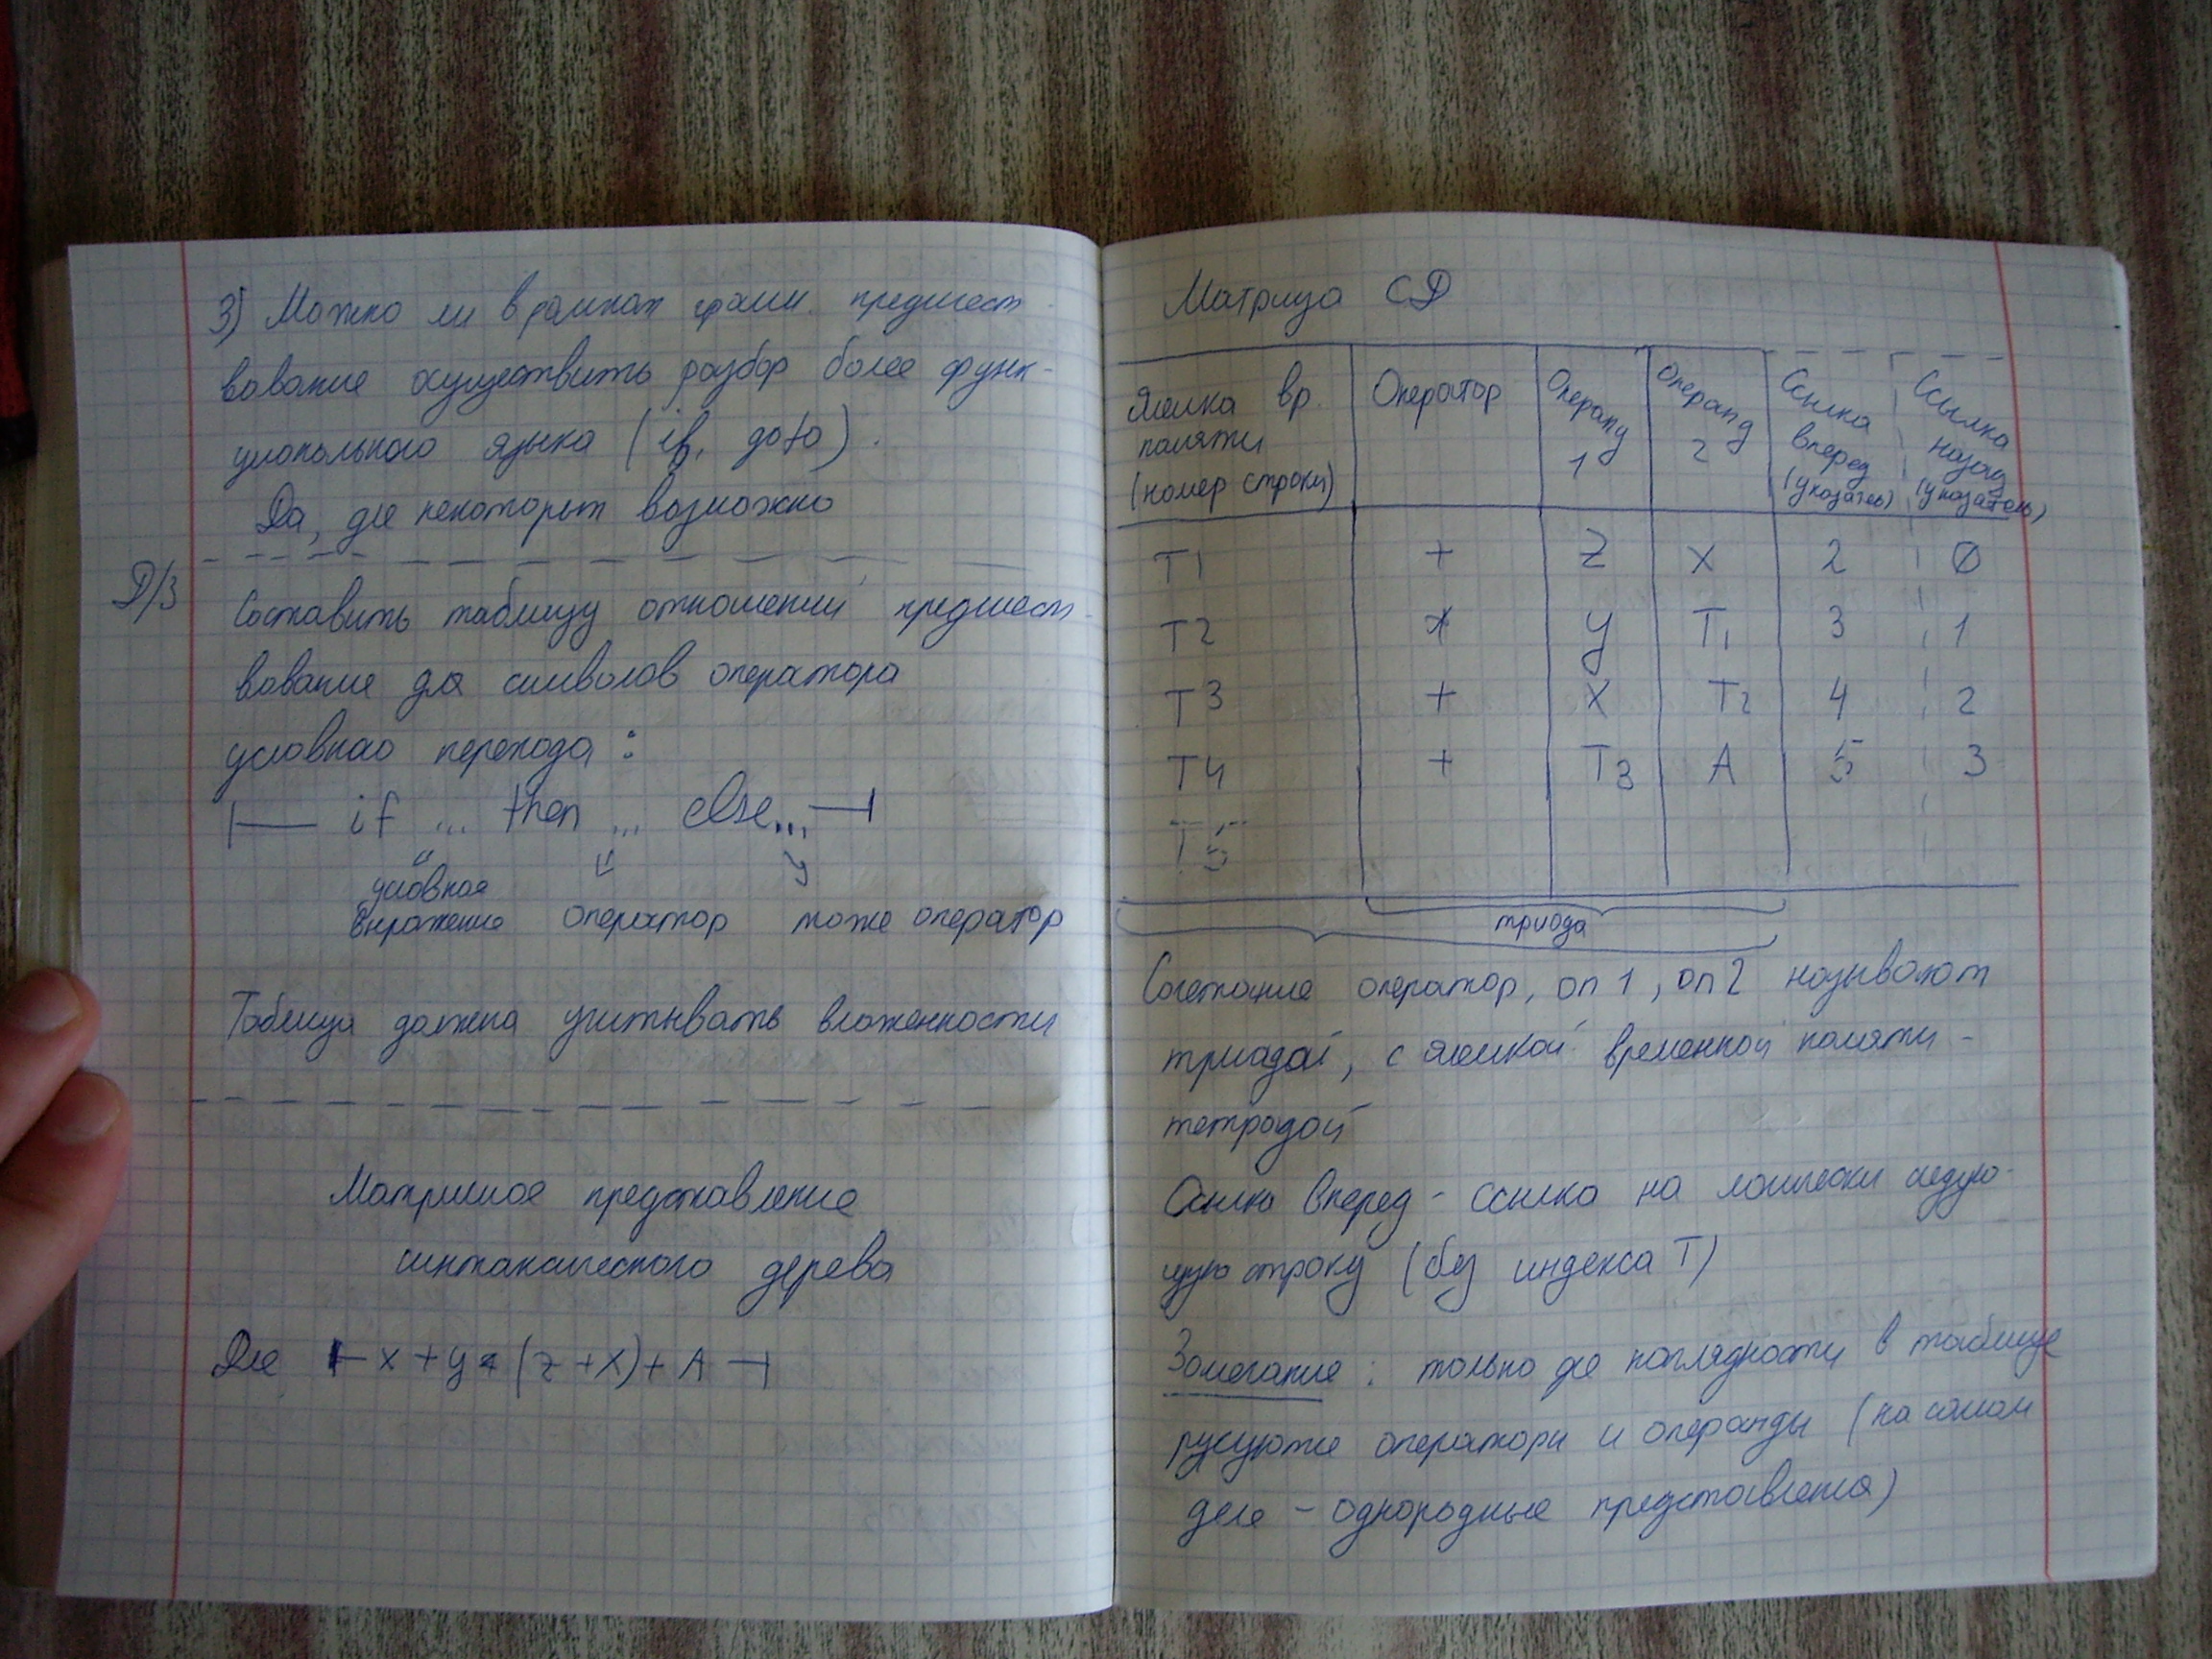 3) Можно ли в рамках грамм. предшест-
вования осуществить разбор более функ-
ционального языка (if, goto).
Да, для некоторых возможно
Д/З
Составить таблицу отношений предшест-
вования для символов оператора
условнао перехода:
|— if ... then ... else... —|
условное
выражение оператор тоже оператор
Таблица должна учитывать вложенности
Матричное представление
синтаксического дерева
Для |- x + y * (z + x) + A -|
Матрица СД
Ячейка вр. памяти (номер строки) | Оператор | Операнд 1 | Операнд 2 | Ссылка вперед (указатель) | Ссылка назад (указатель)
T1 + Z X 2 0
T2 * y T1 3 1
T3 + X T2 4 2
T4 + T3 A 5 3
T5
триада
Сочетание оператор, оп 1, оп 2 называют
триадой, с ячейкой временной памяти -
тетрадой
Ссылка вперед - ссылка на логически следую-
щую строку (без индекса T)
Замечание: только для наглядности в таблице
рисуются операторы и операнды (на самом
деле - однородные представления)